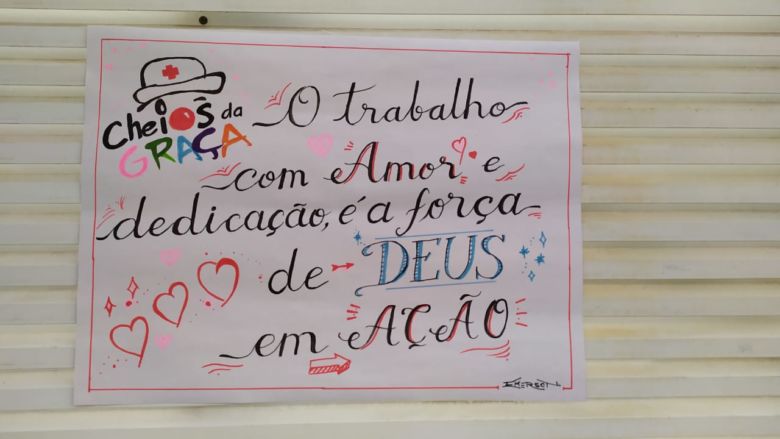 Cheios da
GRAÇA
O trabalho
com Amor e
dedicação, é a força
de DEUS
em AÇÃO
EMERSON